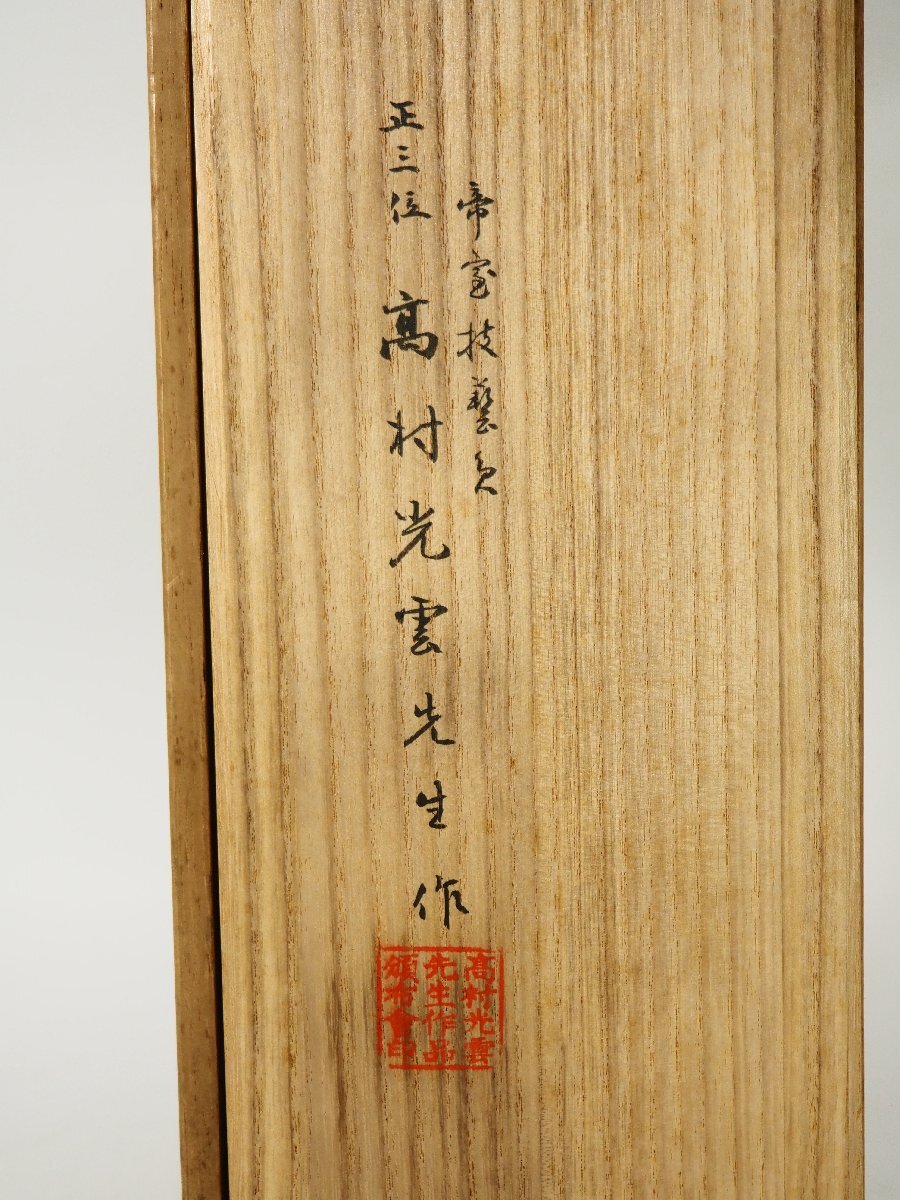 帝室技藝員
正三位 髙村光雲先生作
髙村光雲
先生作品
頒布會印